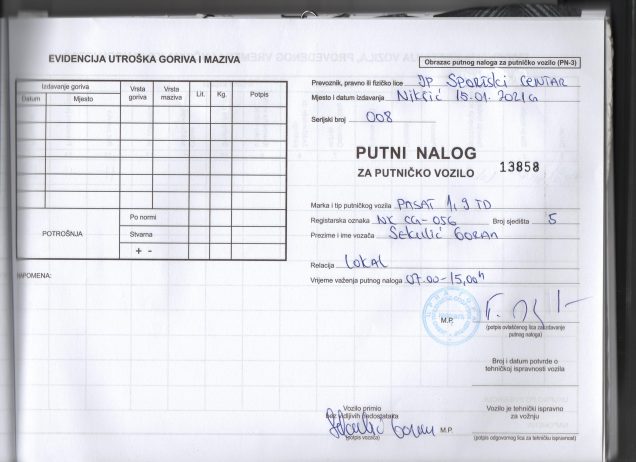 EVIDENCIJA UTROŠKA GORIVA I MAZIVA
Izdavanje goriva
Datum Mjesto
Vrsta goriva
Vrsta maziva
Lit.
Kg.
Potpis
POTROŠNJA
Po normi
Stvarna
+ -
NAPOMENA:
Obrazac putnog naloga za putničko vozilo (PN-3)
Prevoznik, pravno ili fizičko lice JP Sportski CENTAR
Mjesto i datum izdavanja Nikšić 15.01.2021g
Serijski broj 008
PUTNI NALOG
ZA PUTNIČKO VOZILO 13858
Marka i tip putničkog vozila PASAT 1,9 TD
Registarska oznaka NK CG-056 Broj sjedišta 5
Prezime i ime vozača Sekulić Goran
Relacija LOKAL
Vrijeme važenja putnog naloga 07.00-15,00h
M.P.
(potpis ovlašćenog lica za izdavanje
putnog naloga)
Broj i datum potvrde o
tehničkoj ispravnosti vozila
Vozilo primio
bez vidljivih nedostataka
Sekulić Goran M.P.
(potpis vozača)
Vozilo je tehnički ispravno
za vožnju
(potpis odgovornog lica za tehničku ispravnost)